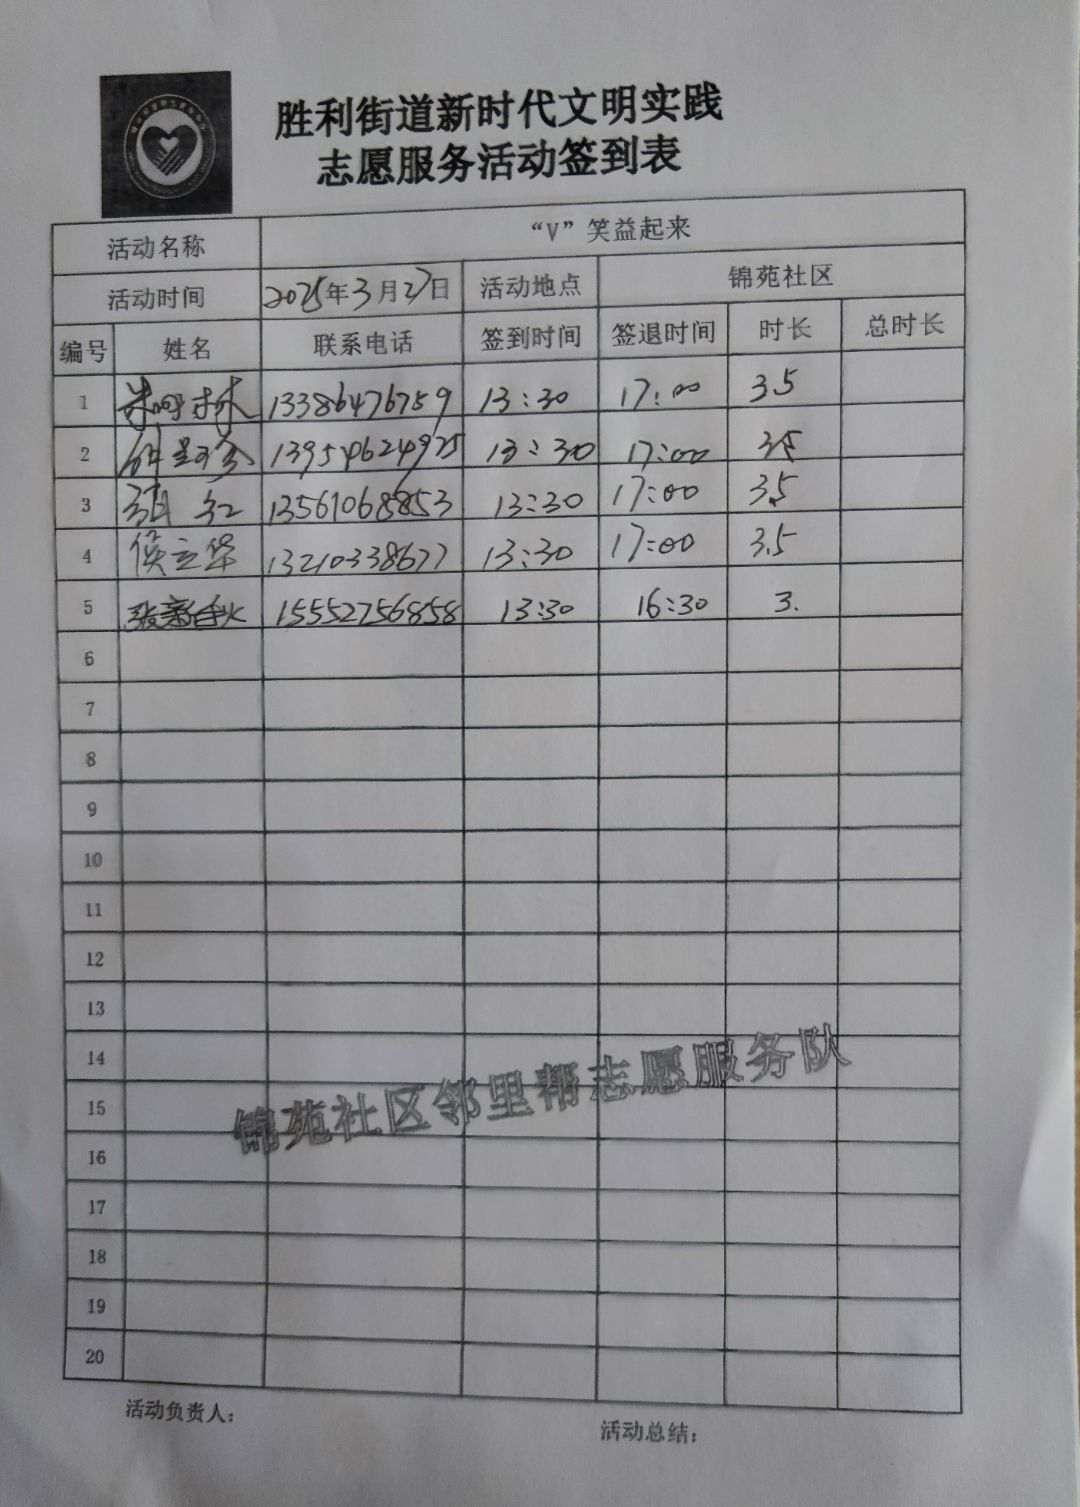 胜利街道新时代文明实践
志愿服务活动签到表
活动名称 “V”笑益起来
活动时间 2025年3月27日 活动地点 锦苑社区
编号 姓名 联系电话 签到时间 签退时间 时长 总时长
1 13386476759 13:30 17:00 3.5
2 13954624925 13:30 17:00 3.5
3 红 13561068853 13:30 17:00 3.5
4 侯立华 13210338677 13:30 17:00 3.5
5 15552756858 13:30 16:30 3.
6
7
8
9
10
11
12
13
14
15
16
17
18
19
20
锦苑社区邻里帮志愿服务队
活动负责人：
活动总结：